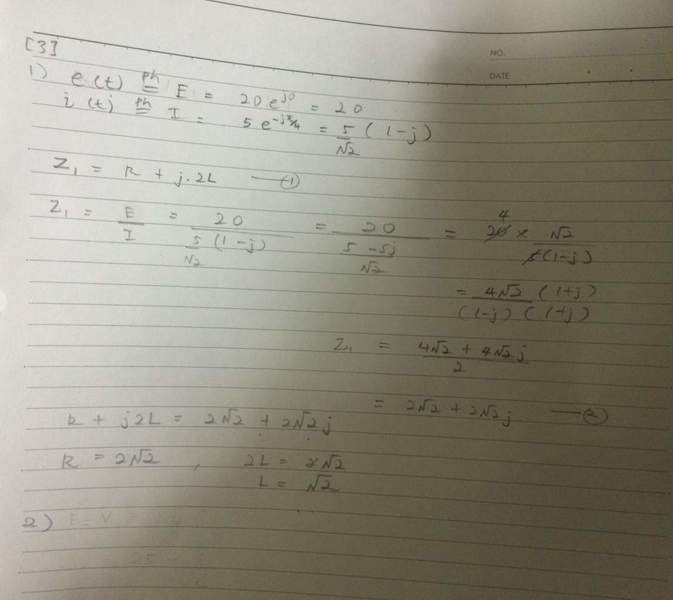 [3]
NO.
DATE
1) e(t) ph= E = 20e^{j0} = 20
i(t) ph= I = 5e^{-jπ/4} = 5/√2 (1-j)
Z₁ = R + j·2L —①
Z₁ = E/I = 20 / (5/√2 (1-j)) = 20 / ((5-5j)/√2) = 4 20 × √2/5(1-j)
= 4√2 (1+j) / (1-j)(1+j)
Z₁ = (4√2 + 4√2j)/2
= 2√2 + 2√2j —②
R + j2L = 2√2 + 2√2j
R = 2√2 , 2L = 2√2
L = √2
2) E = V